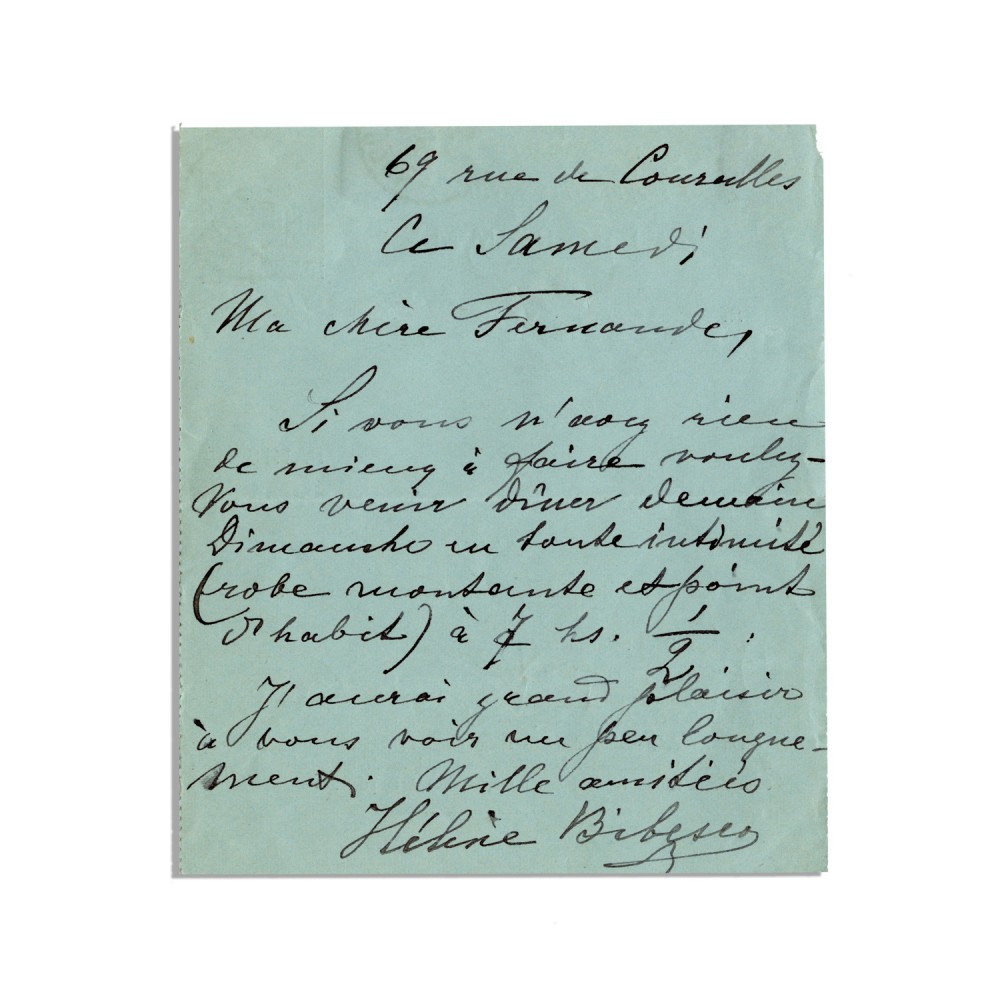 69 rue de Courcelles
Ce Samedi
Ma chère Fernande,
Si vous n'avez rien
de mieux à faire voulez-
vous venir dîner demain
Dimanche en toute intimité
(robe montante et point
d'habit) à 7 hs. 1/2.
J'aurai grand plaisir
à vous voir un peu longue-
ment. Mille amitiés
Hélène Bibesco